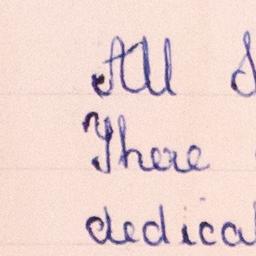 All
There
dedicat